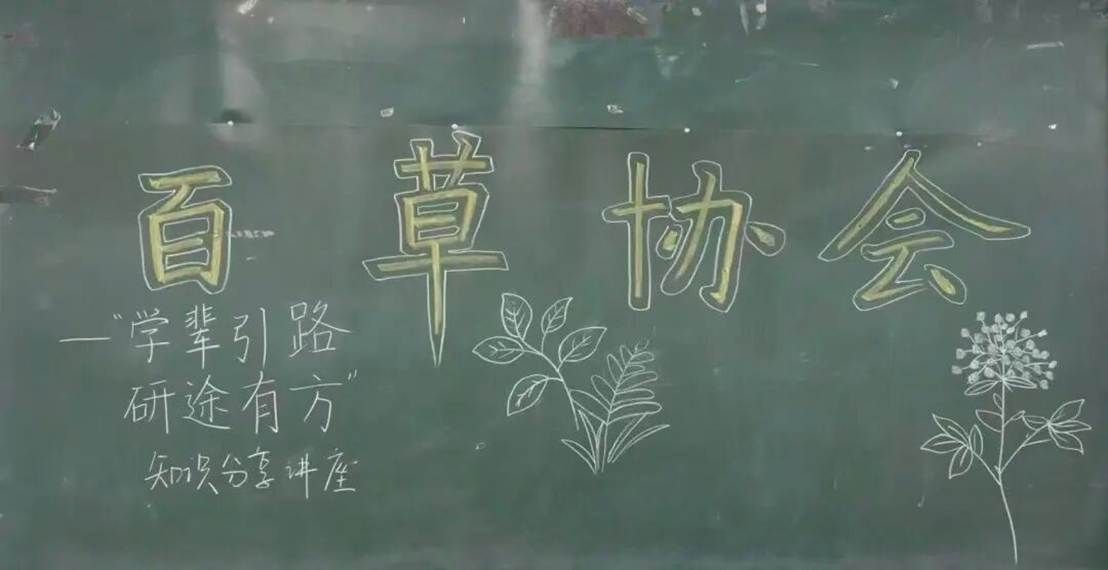 百草协会
—"学辈引路
研途有方"
知识分享讲座